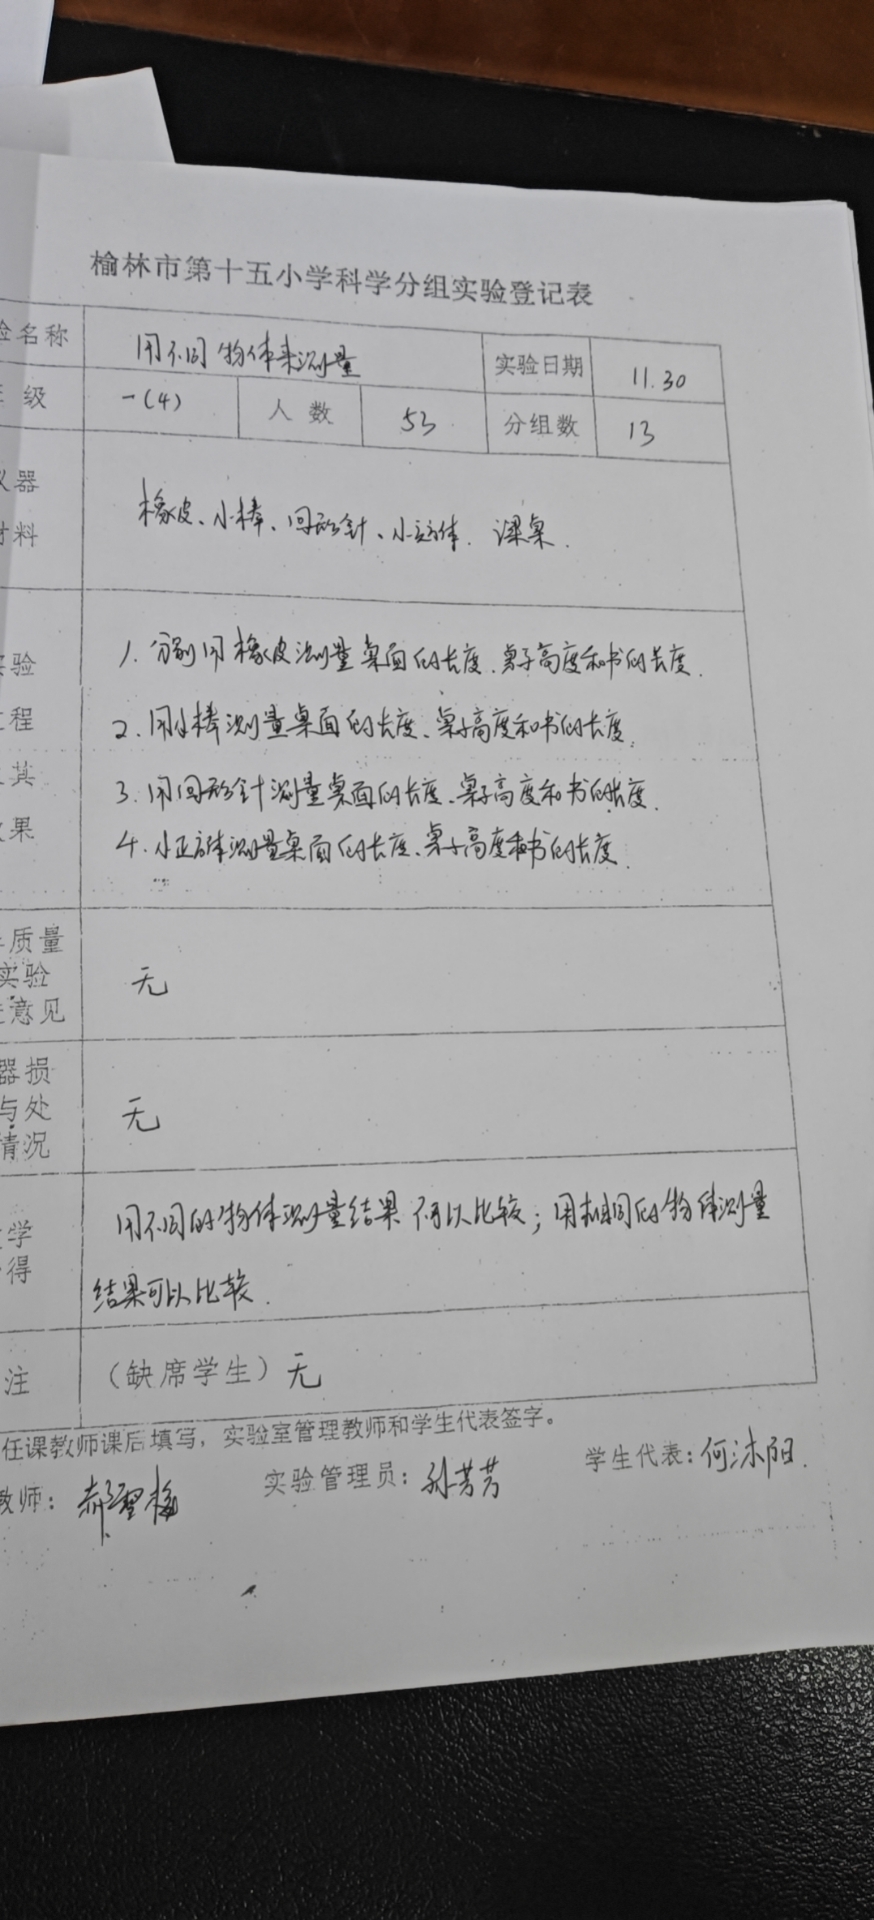 榆林市第十五小学科学分组实验登记表
验名称 用不同物体来测量 实验日期 11.30
级 一(4) 人数 53 分组数 13
仪器
材料
橡皮、小棒、回形针、小方体、课桌.
实验
过程
及其
效果
1. 分别用橡皮测量桌面的长度、桌子高度和书的长度.
2. 用小棒测量桌面的长度、桌子高度和书的长度.
3. 用回形针测量桌面的长度、桌子高度和书的长度.
4. 小正方体测量桌面的长度、桌子高度和书的长度.
质量
实验
意见
无
器损
与处
情况
无
学
得
用不同的物体测量结果不可以比较；用相同的物体测量
结果可以比较.
注 （缺席学生）无
任课教师课后填写，实验室管理教师和学生代表签字。
教师： 实验管理员：孙芳芳 学生代表：何沐阳.